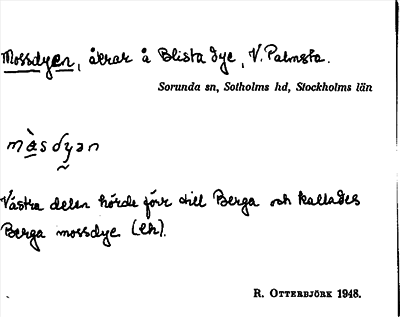 Mossdyen, åkrar å Blista dye, V. Palmsta.
Sorunda sn, Sotholms hd, Stockholms län
màsdyən
Västra delen hörde förr till Berga och kallades
Berga mossdye (ek).
R. Otterbjörk 1948.